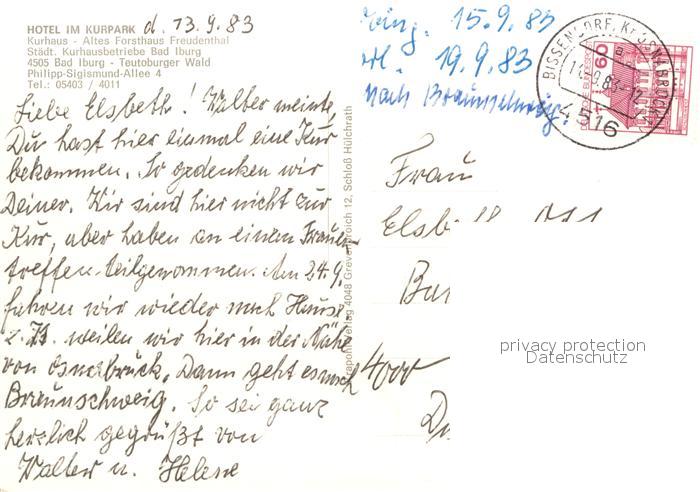 HOTEL IM KURPARK d. 13.9.83
Kurhaus - Altes Forsthaus Freudenthal
Städt. Kurhausbetriebe Bad Iburg
4505 Bad Iburg - Teutoburger Wald
Philipp-Sigismund-Allee 4
Tel.: 05403 / 4011
Liebe Elsbeth! Walter meinte,
Du hast hier einmal eine Kur
bekommen. So gedenken wir
Deiner. Wir sind hier nicht zur
Kur, aber haben an einem
treffen teilgenommen. Am 24.9.
fahren wir wieder nach Hause
z. Zt. weilen wir hier in der Nähe
von Osnabrück. Dann geht es nach
Braunschweig. So sei ganz
herzlich gegrüßt von
Walter u. Helene
Eing. 15.9.83
19.9.83
nach Braunschweig.
4516
60
DEUTSCHE BUNDESPOST
4048 Grevenbroich 12, Schloß Hülchrath
Frau
Elsb
4000
privacy protection
Datenschutz